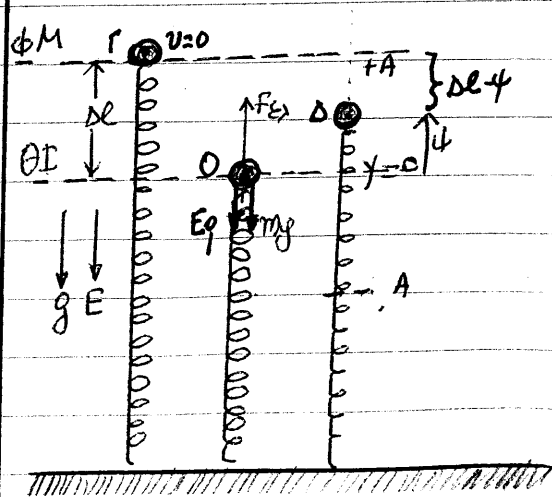 ΦΜ Γ υ=0
+A
Δl
Δl-ψ
Fελ
Δ
ψ
ΘΙ
O
y=0
Eq
mg
g E
-A